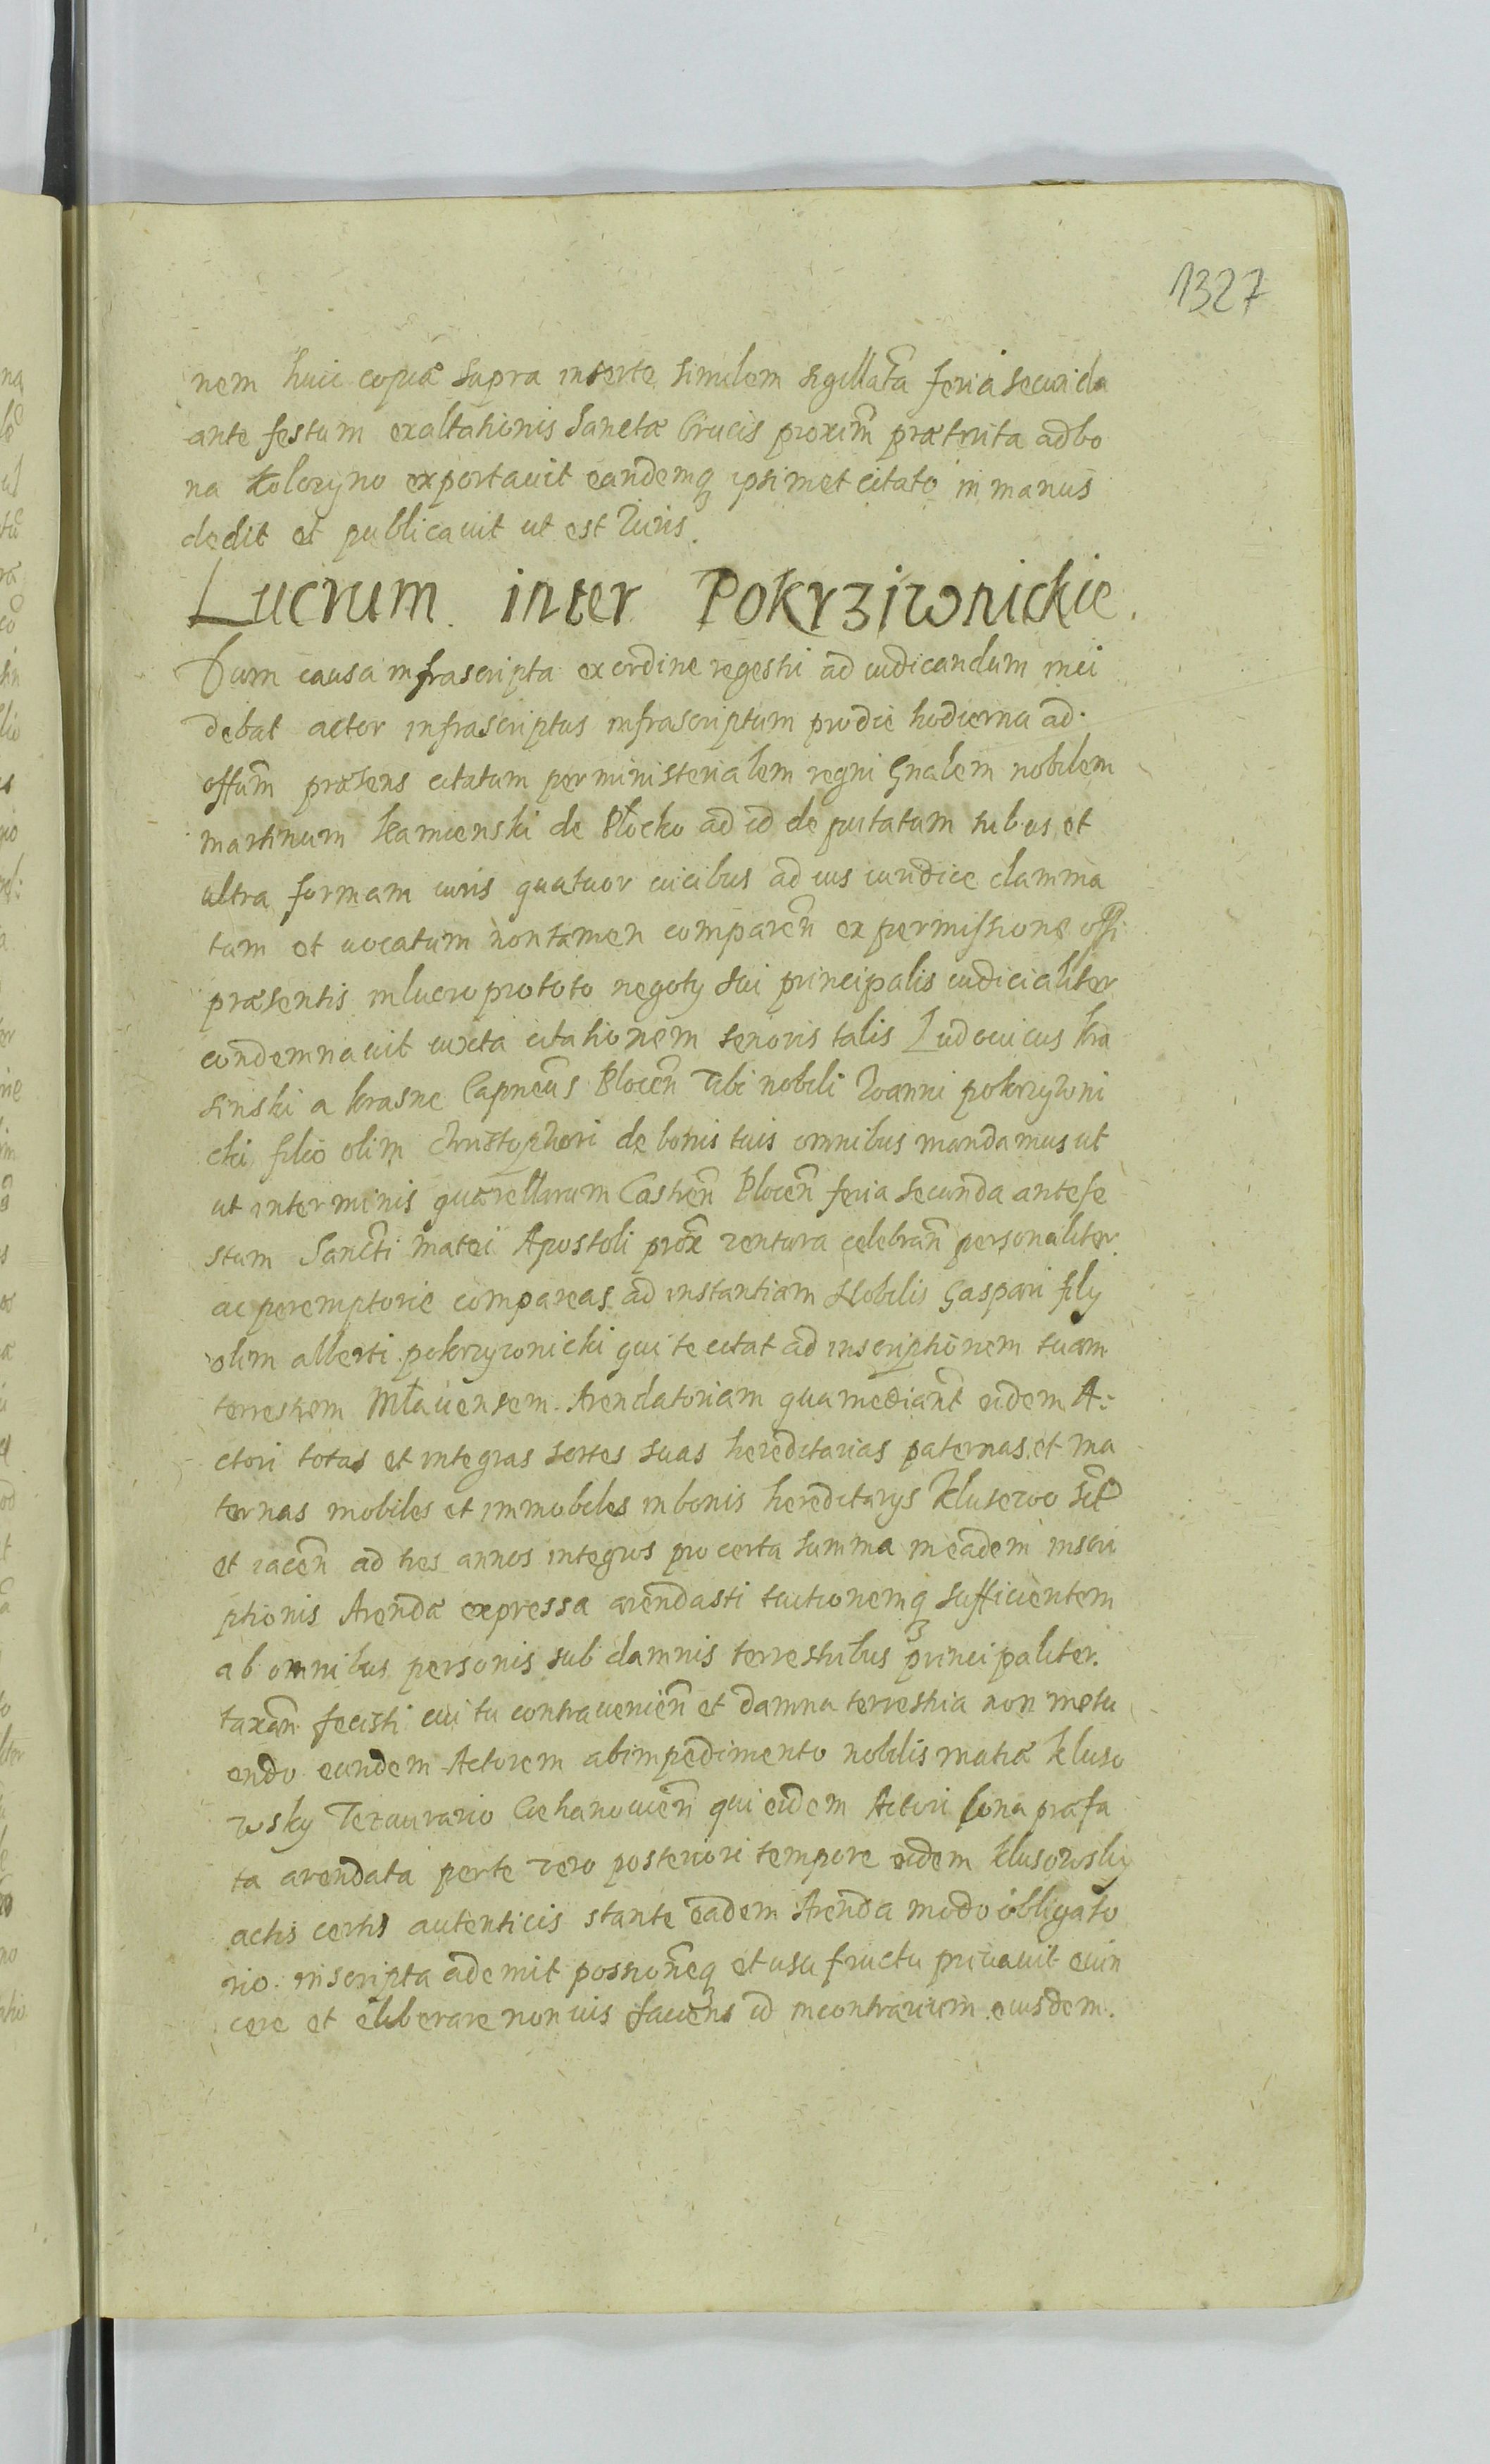 1327
nem huic copiæ supra inserte similem sigillatã feria secunda
ante festum exaltationis Sanctæ Crucis proxim̃ præterita ad bo
na Kolozyno exportauit eandemq ipsimet citato in manus
dedit et publicauit ut est Iuris.
Lucrum inter Pokrziwnickie.
Dum causa infrascripta ex ordine regestri ad iudicandum inci
debat actor infrascriptus infrascriptum pro die hodierna ad
offũm præsens citatum per ministerialem regni Gnalem nobilem
martinum Kamienski de Płocko ad id deputatum tribus et
ultra formam iuris quatuor uicibus ad ius iuridice clamma
tum et uocatum non tamen compareñ ex permissione offi
præsentis in lucro pro toto negoty sui principalis iudicialiter
condemnauit iuxta citationem tenoris talis Ludouicus Kra
sinski a Krasne Capneus Płoceñ Tibi nobili Ioanni pokrzywni
cki filio olim Christopheri de bonis tuis omnibus mandamus ut
ut in terminis quærellarum Castreñ Płoceñ feria secunda ante fe
stum Sancti Matei Apostoli prox ventura celebrañ personaliter
ac peremptorie compareas ad instantiam Nobilis Gaspari fily
olim alberti pokrzywnicki qui te citat ad inscriptionem tuam
terrestrem Młauensem Arendatoriam qua mediant eidem A:
ctori totas et integras sortes suas hereditarias paternas et ma
ternas mobiles et immobiles in bonis hereditarys Klusewo sit
et iaceñ ad tres annos integros pro certa summa in eadem inscri
ptionis Arendæ expressa arendasti tuitionemq sufficientem
ab omnibus personis sub damnis terrestribus principaliter
taxañ fecisti cui tu contraueniẽn et damna terrestria non metu
endo eundem Actorem ab impedimento nobilis matiæ Kluso
wsky Tezaurario Ciehanouieñ qui eidem Actori bona præfa
ta arendata per te vero posteriori tempore eidem Klusowsky
actis certis autenticis stante eadem Arenda modo obligato
rio inscripta ademit possioneq et usu fructu priuauit euin
cere et eliberare non uis faciens id in contrarium eiusdem.